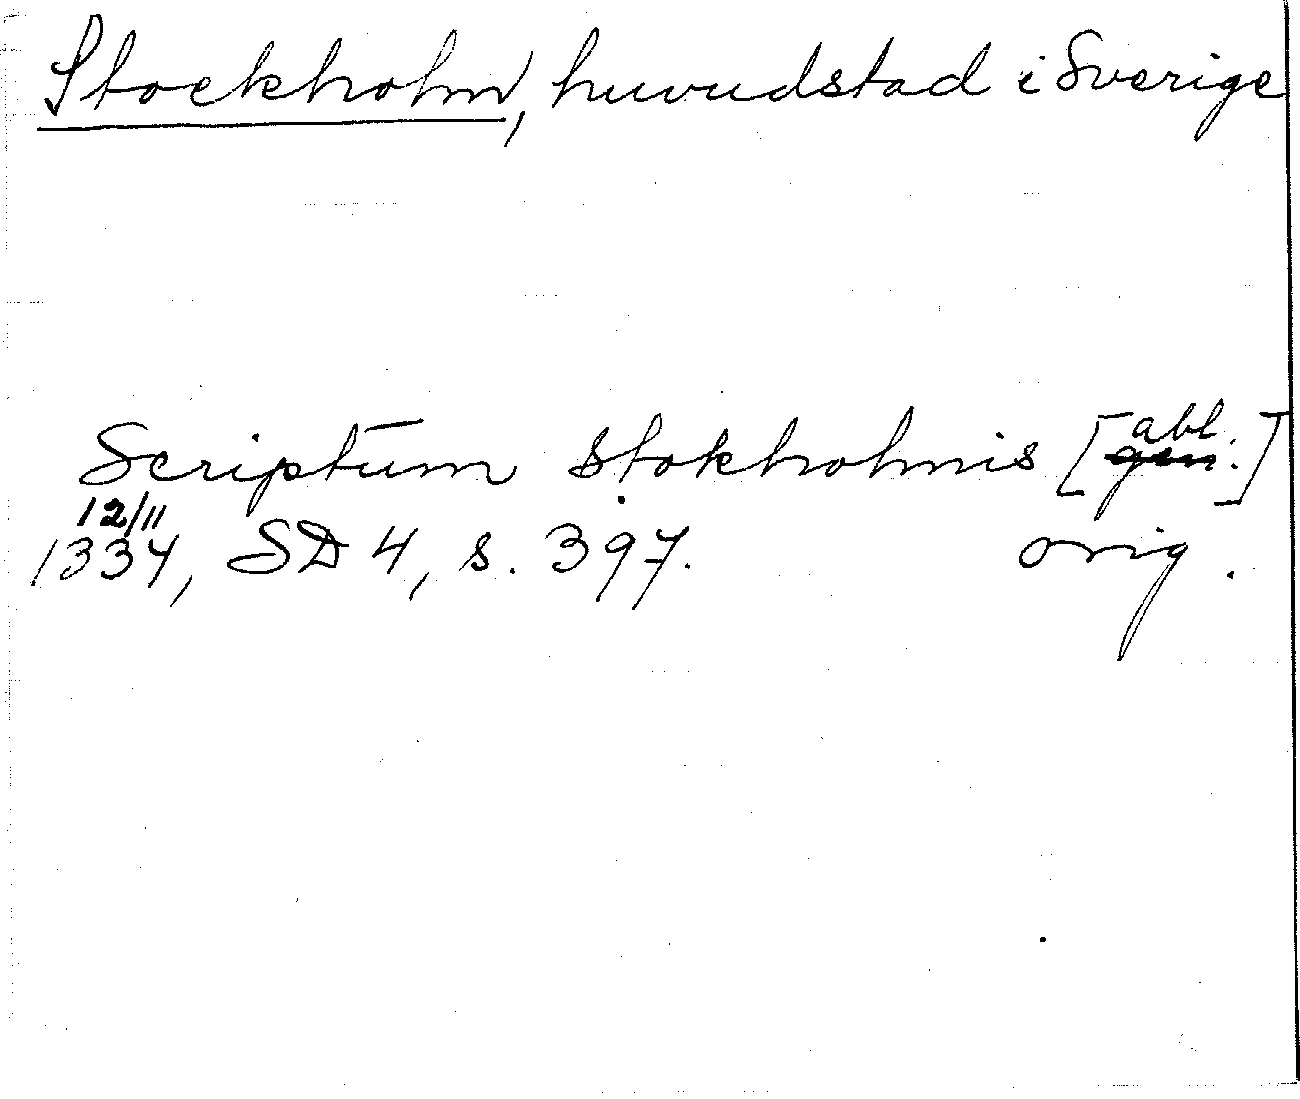 Stockholm, huvudstad i Sverige
Scriptum Stokholmis [abl. gen.]
12/11
1334, SD 4, s. 397. orig.